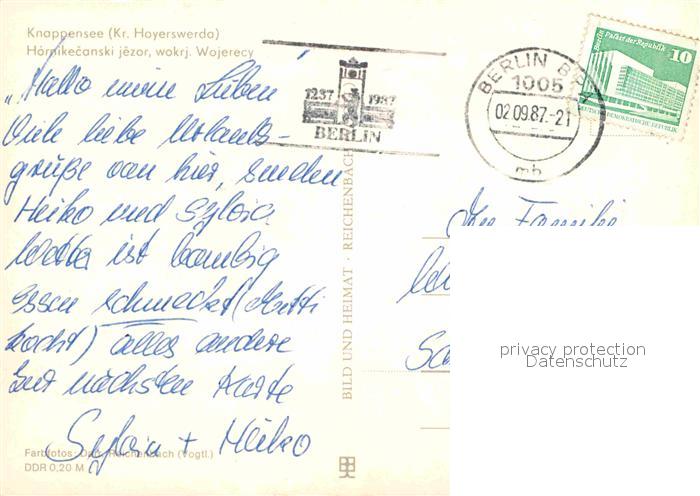 Knappensee (Kr. Hoyerswerda)
Hórnikečanski jězor, wokrj. Wojerecy
"Hallo meine Lieben
Viele liebe Urlaubs-
grüße von hier, senden
Heiko und Sylvia
Wetter ist bombig
Essen schmeckt (Mutti
kocht) alles andere
zur nächsten Karte
Sylvia + Heiko
Farbfotos: Darr, Reichenbach (Vogtl.)
DDR 0,20 M
BILD UND HEIMAT · REICHENBACH
1237 1987
BERLIN
BERLIN BPA
1005
02.09.87.-21
mb
Berlin Palast der Republik 10
DEUTSCHE DEMOKRATISCHE REPUBLIK
Familie
privacy protection
Datenschutz